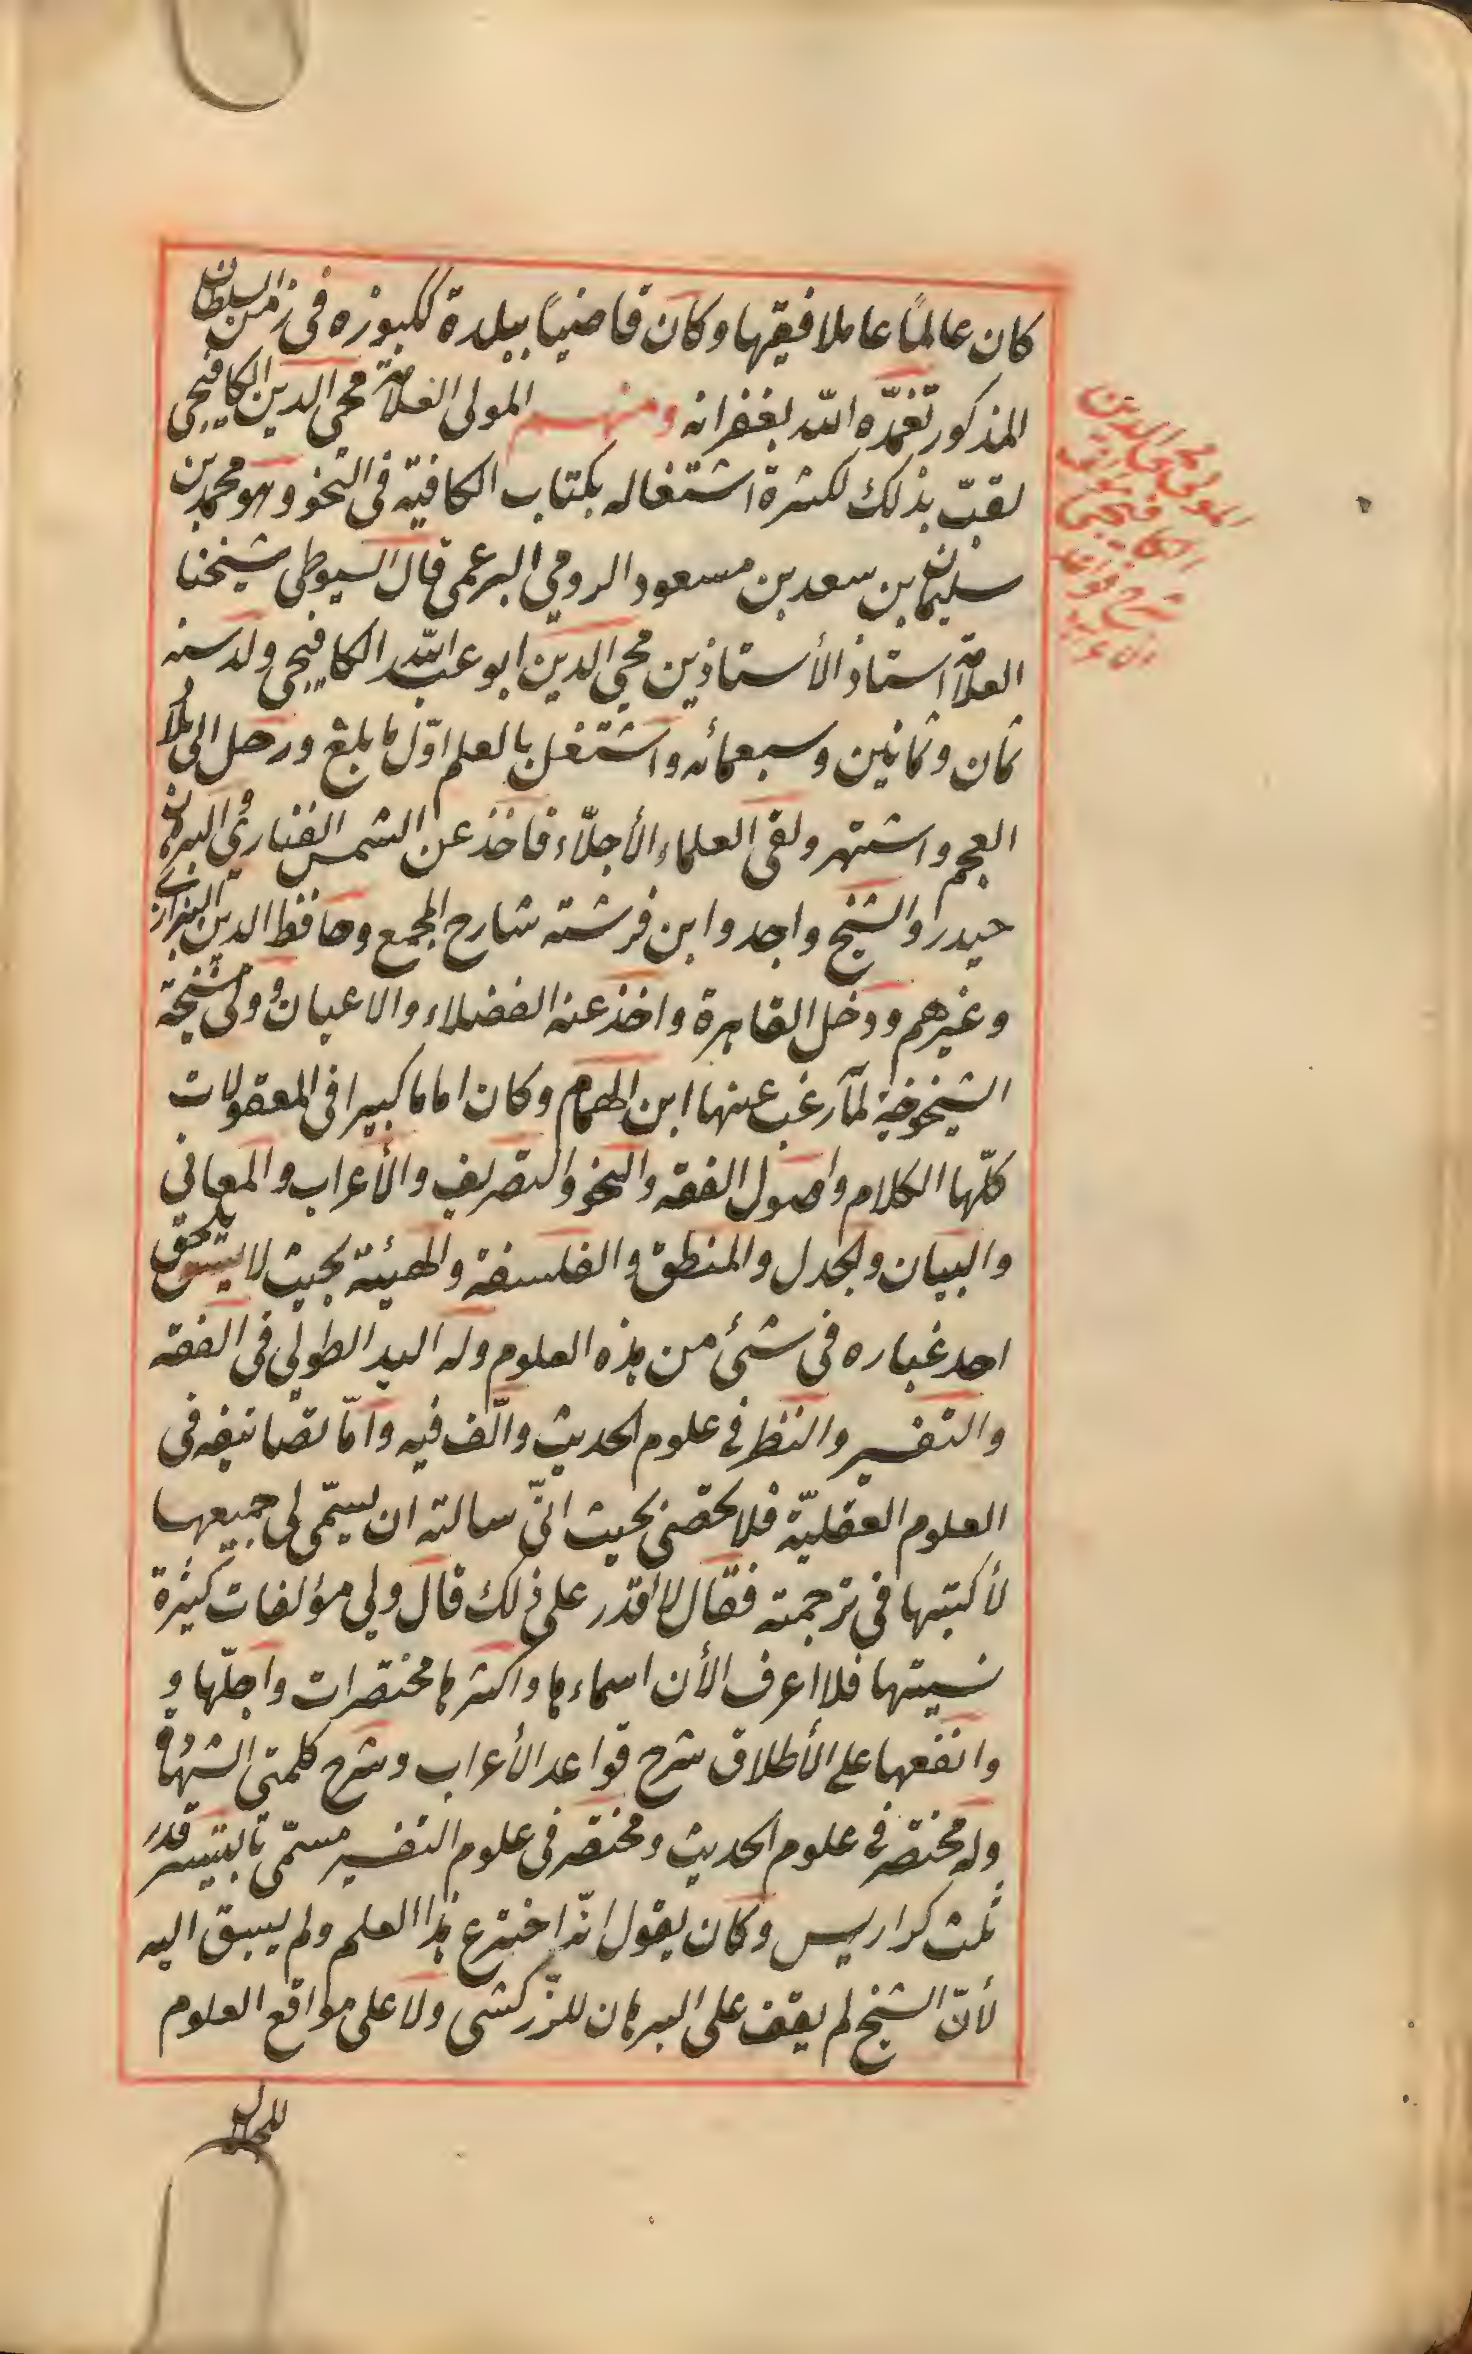 كان عالمًا عاملا فقيها وكان قاضيًا ببلدة ككبوزه فى زمن السلطان
المذكور تغمّده الله بغفرانه ومنهم المولى العلامة محيى الدين الكافيجى
لقبّ بذلك لكثرة اشتغاله بكتاب الكافيّه فى النحو وهو محمد بن
سليمان بن سعد بن مسعود الرومى البرعمى قال السيوطى شيخنا
العلامة استاذ الأستاذين محيى الدين ابو عبد الله الكافيجى ولد سنه
ثمان وثمانين وسبعمائه واشتغل بالعلم اوّل ما بلغ ورحل الى بلاد
العجم واشتهر ولقى العلماء الأجلّاء فاخذ عن الشمس الفنارى والبرهان
حيدر والشيخ واجد وابن فرشته شارح المجمع وحافظ الدين البزازى
وغيرهم ودخل القاهرة واخذ عنه الفضلاء والاعيان وولى مشيخة
الشيخونية لمّا رغب عنها ابن الهمام وكان اماما كبيرا فى المعقولات
كلّها الكلام واصول الفقه والنحو والتصريف والأعراب والمعانى
والبيان والجدل والمنطق والفلسفة والهيئة بحيث لا يلحق
احد غباره فى شئ من هذه العلوم وله اليد الطولى فى الفقه
والتفسير والنظر فى علوم الحديث والّف فيه وامّا تصانيفه فى
العلوم العقليّة فلا تحصى بحيث انّى سالته ان يسمّى لى جميعها
لأكتبها فى ترجمته فقال لا أقدر على ذلك قال ولى مؤلفات كثيرة
نسيتها فلا اعرف الأن اسماءها واكثرها مختصرات واجلّها و
وانفعها على الأطلاق شرح قواعد الأعراب وشرح كلمتى الشهادة
وله مختصر فى علوم الحديث ومختصر فى علوم التفسير مسمّى بالتيسير قدر
ثلث كراريس وكان يقول انّه اخترع هذا العلم ولم يسبق اليه
لأنّ الشيخ لم يقف على البرهان للزّركشى ولا على مواقع العلوم
للجلال
المولى محيى الدين
الكافيجى
شرح قواعد
الاعراب